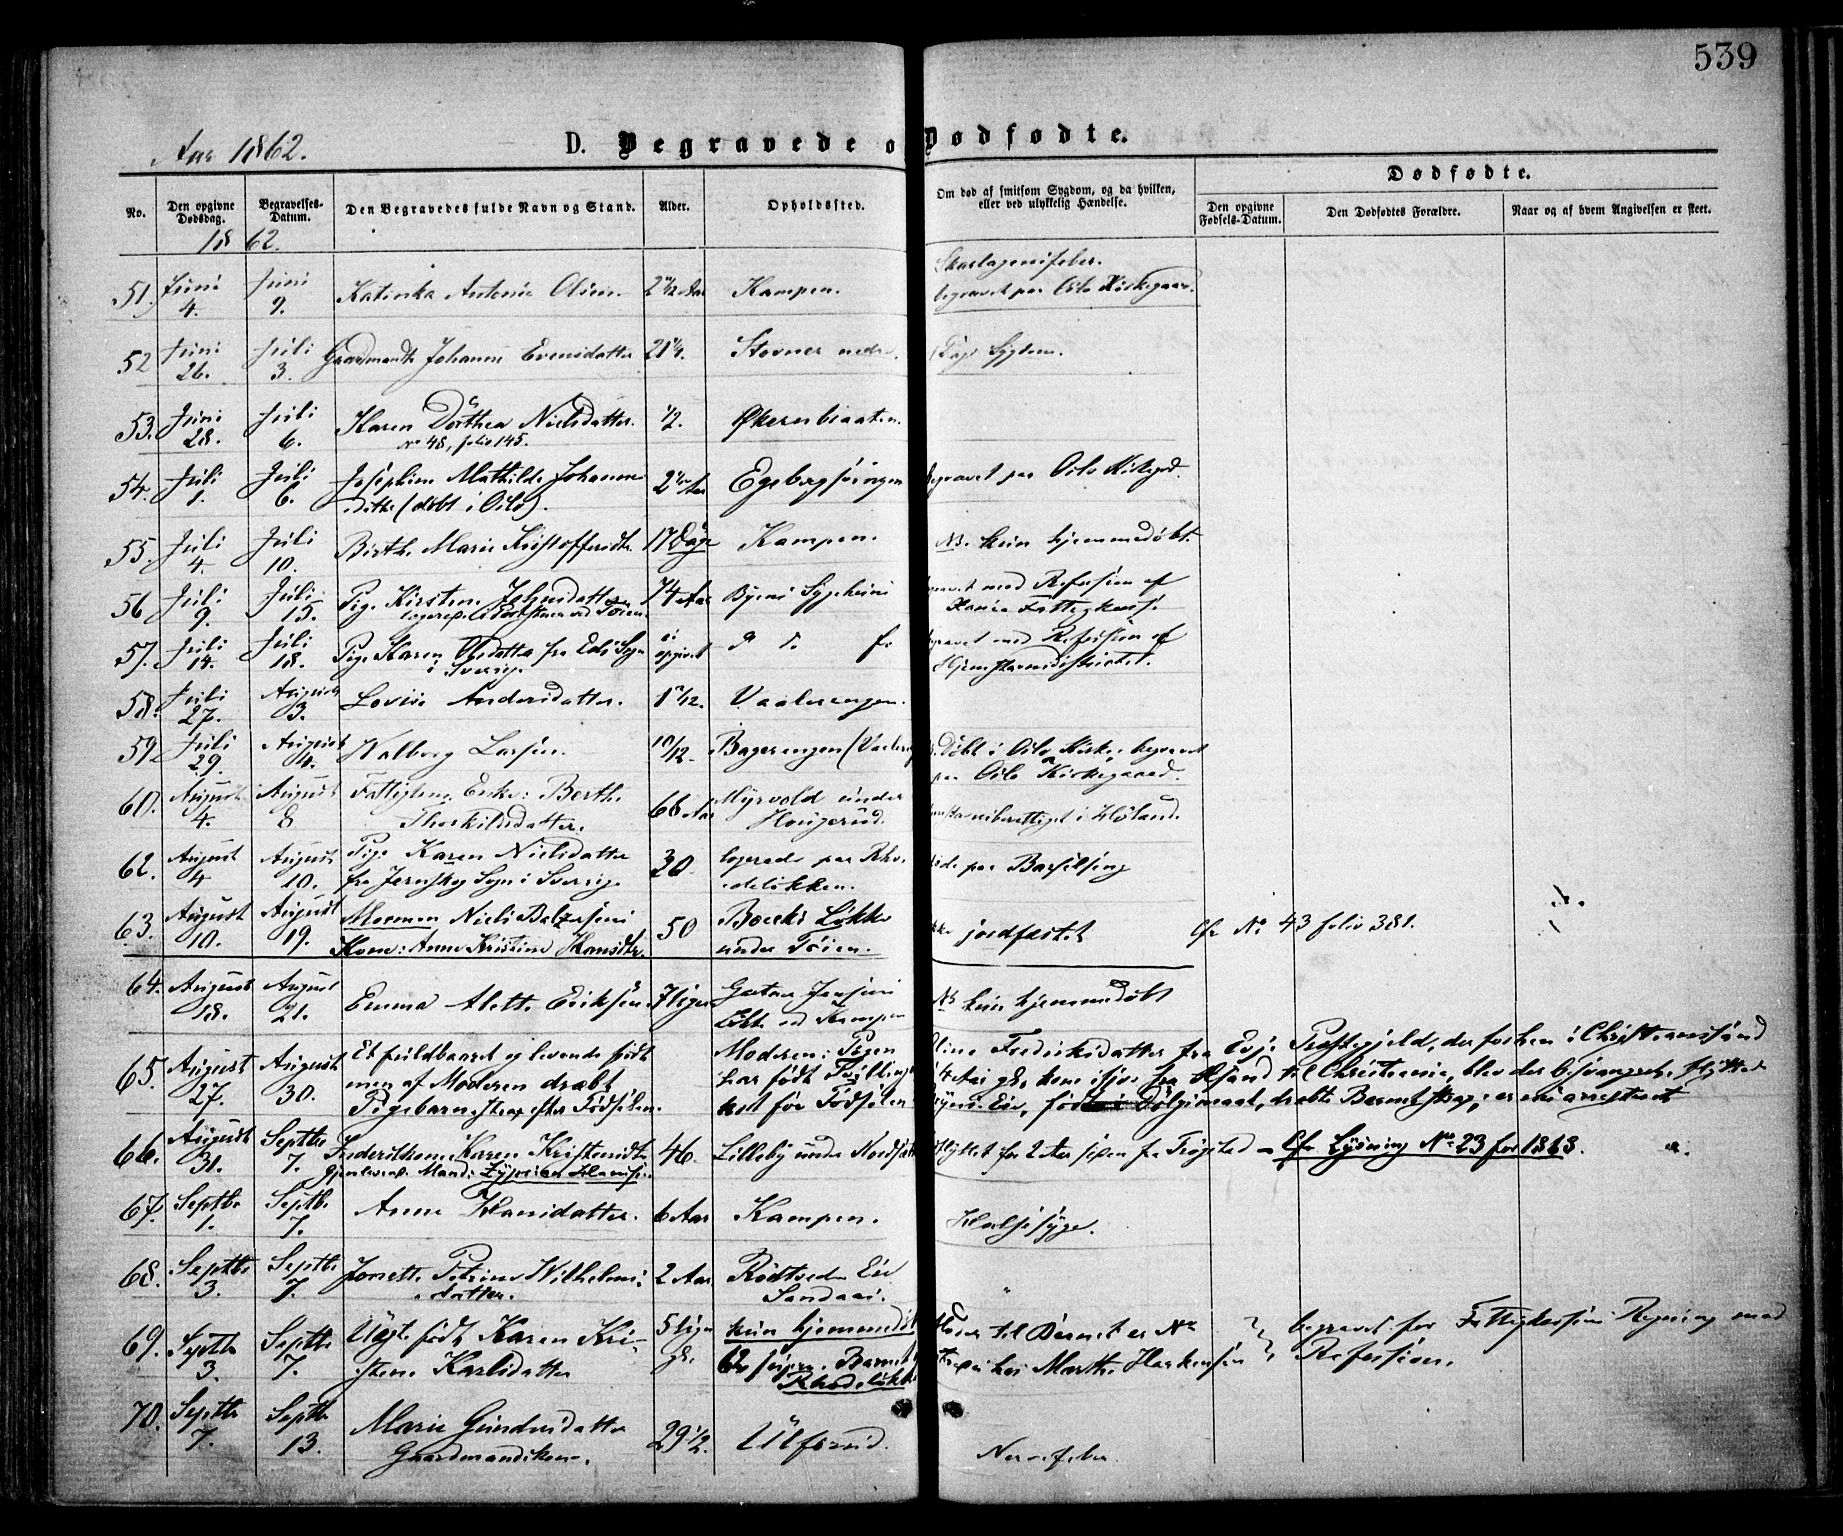 539
Aar 1862.
D. Begravede o Dødfødte.
No.
Den opgivne Dødsdag.
Begravelses-Datum.
Den Begravedes fulde Navn og Stand.
Alder.
Opholdssted.
Om død af smitsom Sygdom, og da hvilken, eller ved ulykkelig Hændelse.
Dødfødte.
Den opgivne Fødsels-Datum.
Den Dødfødtes Forældre.
Naar og af hvem Angivelsen er skeet.
1862.
51. Juni 4. Juni 9. Katinka Antonie Olsen. Kampen. Skarlagensfeber.
begravet paa Oslo Kirkegaard.
52 Juni 26. Juli 3. Johanne Evensdatter Stovner nedre. Sygdom.
53. Juni 28. Juli 6. Karen Dorthea Nielsdatter. 1/2. Økernbraaten.
No 48, folio 145.
54. Juli 1. Juli 6. Josephine Mathilde Johanne
datter (døbt i Oslo). Egebergføringen begravet paa Oslo Kirkegd.
55. Juli 4. Juli 10. Birthe Marie Kristoffersdtr. 17 Dage Kampen. NB. kun hjemmedøbt.
56 Juli 9. Juli 15. Pige Kirstine Johnsdatter 74 Aar Byens Sygehuus med Refusion af
ved Tøien. Fattigkasse
57. Juli 14. Juli 18. Pige Karen Olsdatter fra Eds Sogn
i Sverige ei opgivet begravet med Refusion af
Hjemstavnsdistriktet.
58. Juli 27. August 3. Lovise Andersdatter. Vaalerengen.
59. Juli 29. August 4. Valborg Larsen. 10/12. Døbt i Oslo Kirke, begravet
paa Oslo Kirkegaard.
60. August 4. August 8 Fattiglem, Enke: Berthe
Thorkildsdatter. 66 Aar Myrvold under
Hougerud. i Høland.
62. August 4 August 10. Pige Karen Nielsdatter
fra Jernskog Sogn i Sverige 30 logerede paa Rho-
deløkken. døde paa Barselseng
63. August 10. August 19. Mormon Niels Balzersens
Kone: Anne Kristine Hansdtr. 50 Løkke
under Tøien. ikke jordfæstet Cfr No 43 folio 381.
64. August 18. August 21. Emma Alette Eriksen. 7 Uger Gustav Jensens
Løkke ved Kampen NB kun hjemmedøbt
65. August 27. August 30. Et fuldbaaret og levende født
men af Moderen dræbt
Pigebarn strax efter Fødselen. Moderen: Pigen
har født Tvillinger
kort før Fødselen Oline Fredriksdatter fra Evje Præstegjeld, der forhen i Christianssand
til Christiania, blev der besvangret, flyttede
født i Dølgsmaal, dræbte Barnet strax; er nu arresteret
66. August 31. Septbr 7. Karen Kristensdtr
gjenlevende Mand: Zyprian Hansen. 46. Lilleby under flyttet for 2 Aar siden fra Trøgstad – Cfr Lysning No 23 for 1863.
67. Septbr 1. Septbr 7. Anne Hansdatter. 6 Aar Kampen. Halssyge.
68. Septbr 3. Septbr 7. Jonette Petrine Wilhelms-
datter. 2 Aar Rødtvedt Eie
Sandaas.
69. Septbr 3. Septbr 7. Uægte født Karen Kri-
stine Karlsdatter 5 Uger
gl. kun hjemmedøbt
62 Barnet
Rhodeløkken Moder til Barnet er No
hos Marthe Haakensen begravet for Fattigkassens Regning med
Refusion.
70. Septbr 7. Septbr 13. Marie Gundersdatter
Gaardmandskone. 29 1/2. Ulfsrud. Nervefeber